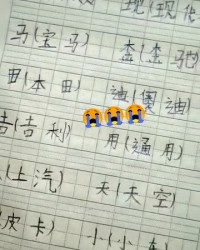 现(现代
马(宝马) 奔(奔驰
田(本田) 迪(奥迪)
吉(吉利) 用(通用)
(上汽) 天(天空)
皮卡) 小(小